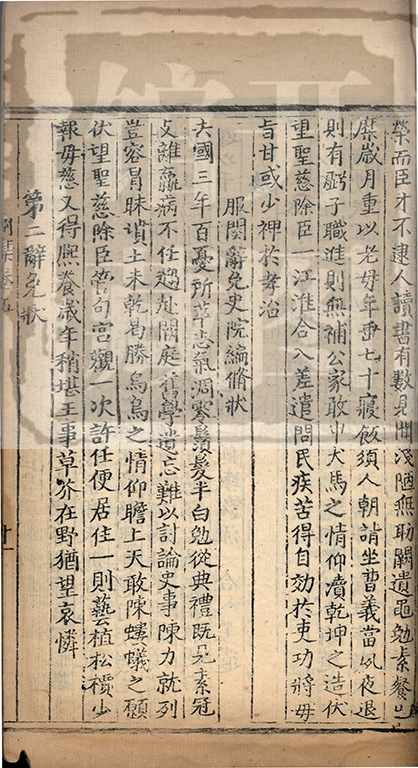 榮而臣才不逮人讀書有數見聞淺陋無助闕遺黽勉素餐已
糜歲月重以老母年垂七十寢飯須人朝請坐曹義當夙夜退
則有虧子職進則無補公家敢申犬馬之情仰瀆乾坤之造伏
望聖慈除臣一江淮合入差遣問民疾苦得自効於吏功將母
旨甘或少裨於孝治
服闋辭免史院編脩狀
去國三年百憂所萃志氣凋寒鬚髮半白勉從典禮既見素冠
支離羸病不任趨赴闕庭舊學遺忘難以討論史事陳力就列
豈容冒昧墳土未乾曷勝烏鳥之情仰瞻上天敢陳螻蟻之願
伏望聖慈除臣管句宮觀一次許任便居住一則藝植松檟少
報母慈又得熙養歲年稍堪王事草芥在野猶望哀憐
第二辭免狀